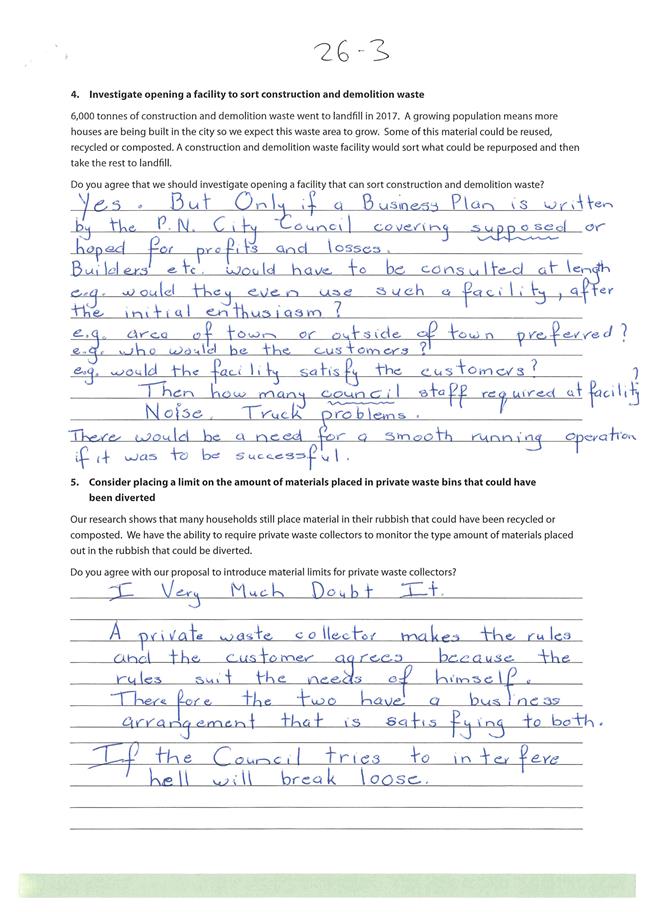 26-3
4. Investigate opening a facility to sort construction and demolition waste
6,000 tonnes of construction and demolition waste went to landfill in 2017. A growing population means more
houses are being built in the city so we expect this waste area to grow. Some of this material could be reused,
recycled or composted. A construction and demolition waste facility would sort what could be repurposed and then
take the rest to landfill.
Do you agree that we should investigate opening a facility that can sort construction and demolition waste?
Yes. But Only if a Business Plan is written
by the P.N. City Council covering supposed or
hoped for profits and losses.
Builders' etc. would have to be consulted at length
e.g. would they even use such a facility, after
the initial enthusiasm?
e.g. area of town or outside of town preferred?
e.g. who would be the customers?
e.g. would the facility satisfy the customers?
Then how many council staff required at facility?
Noise. Truck problems.
There would be a need for a smooth running operation
if it was to be successful.
5. Consider placing a limit on the amount of materials placed in private waste bins that could have
been diverted
Our research shows that many households still place material in their rubbish that could have been recycled or
composted. We have the ability to require private waste collectors to monitor the type amount of materials placed
out in the rubbish that could be diverted.
Do you agree with our proposal to introduce material limits for private waste collectors?
I Very Much Doubt It.
A private waste collector makes the rules
and the customer agrees because the
rules suit the needs of himself.
Therefore the two have a business
arrangement that is satisfying to both.
If the Council tries to interfere
hell will break loose.